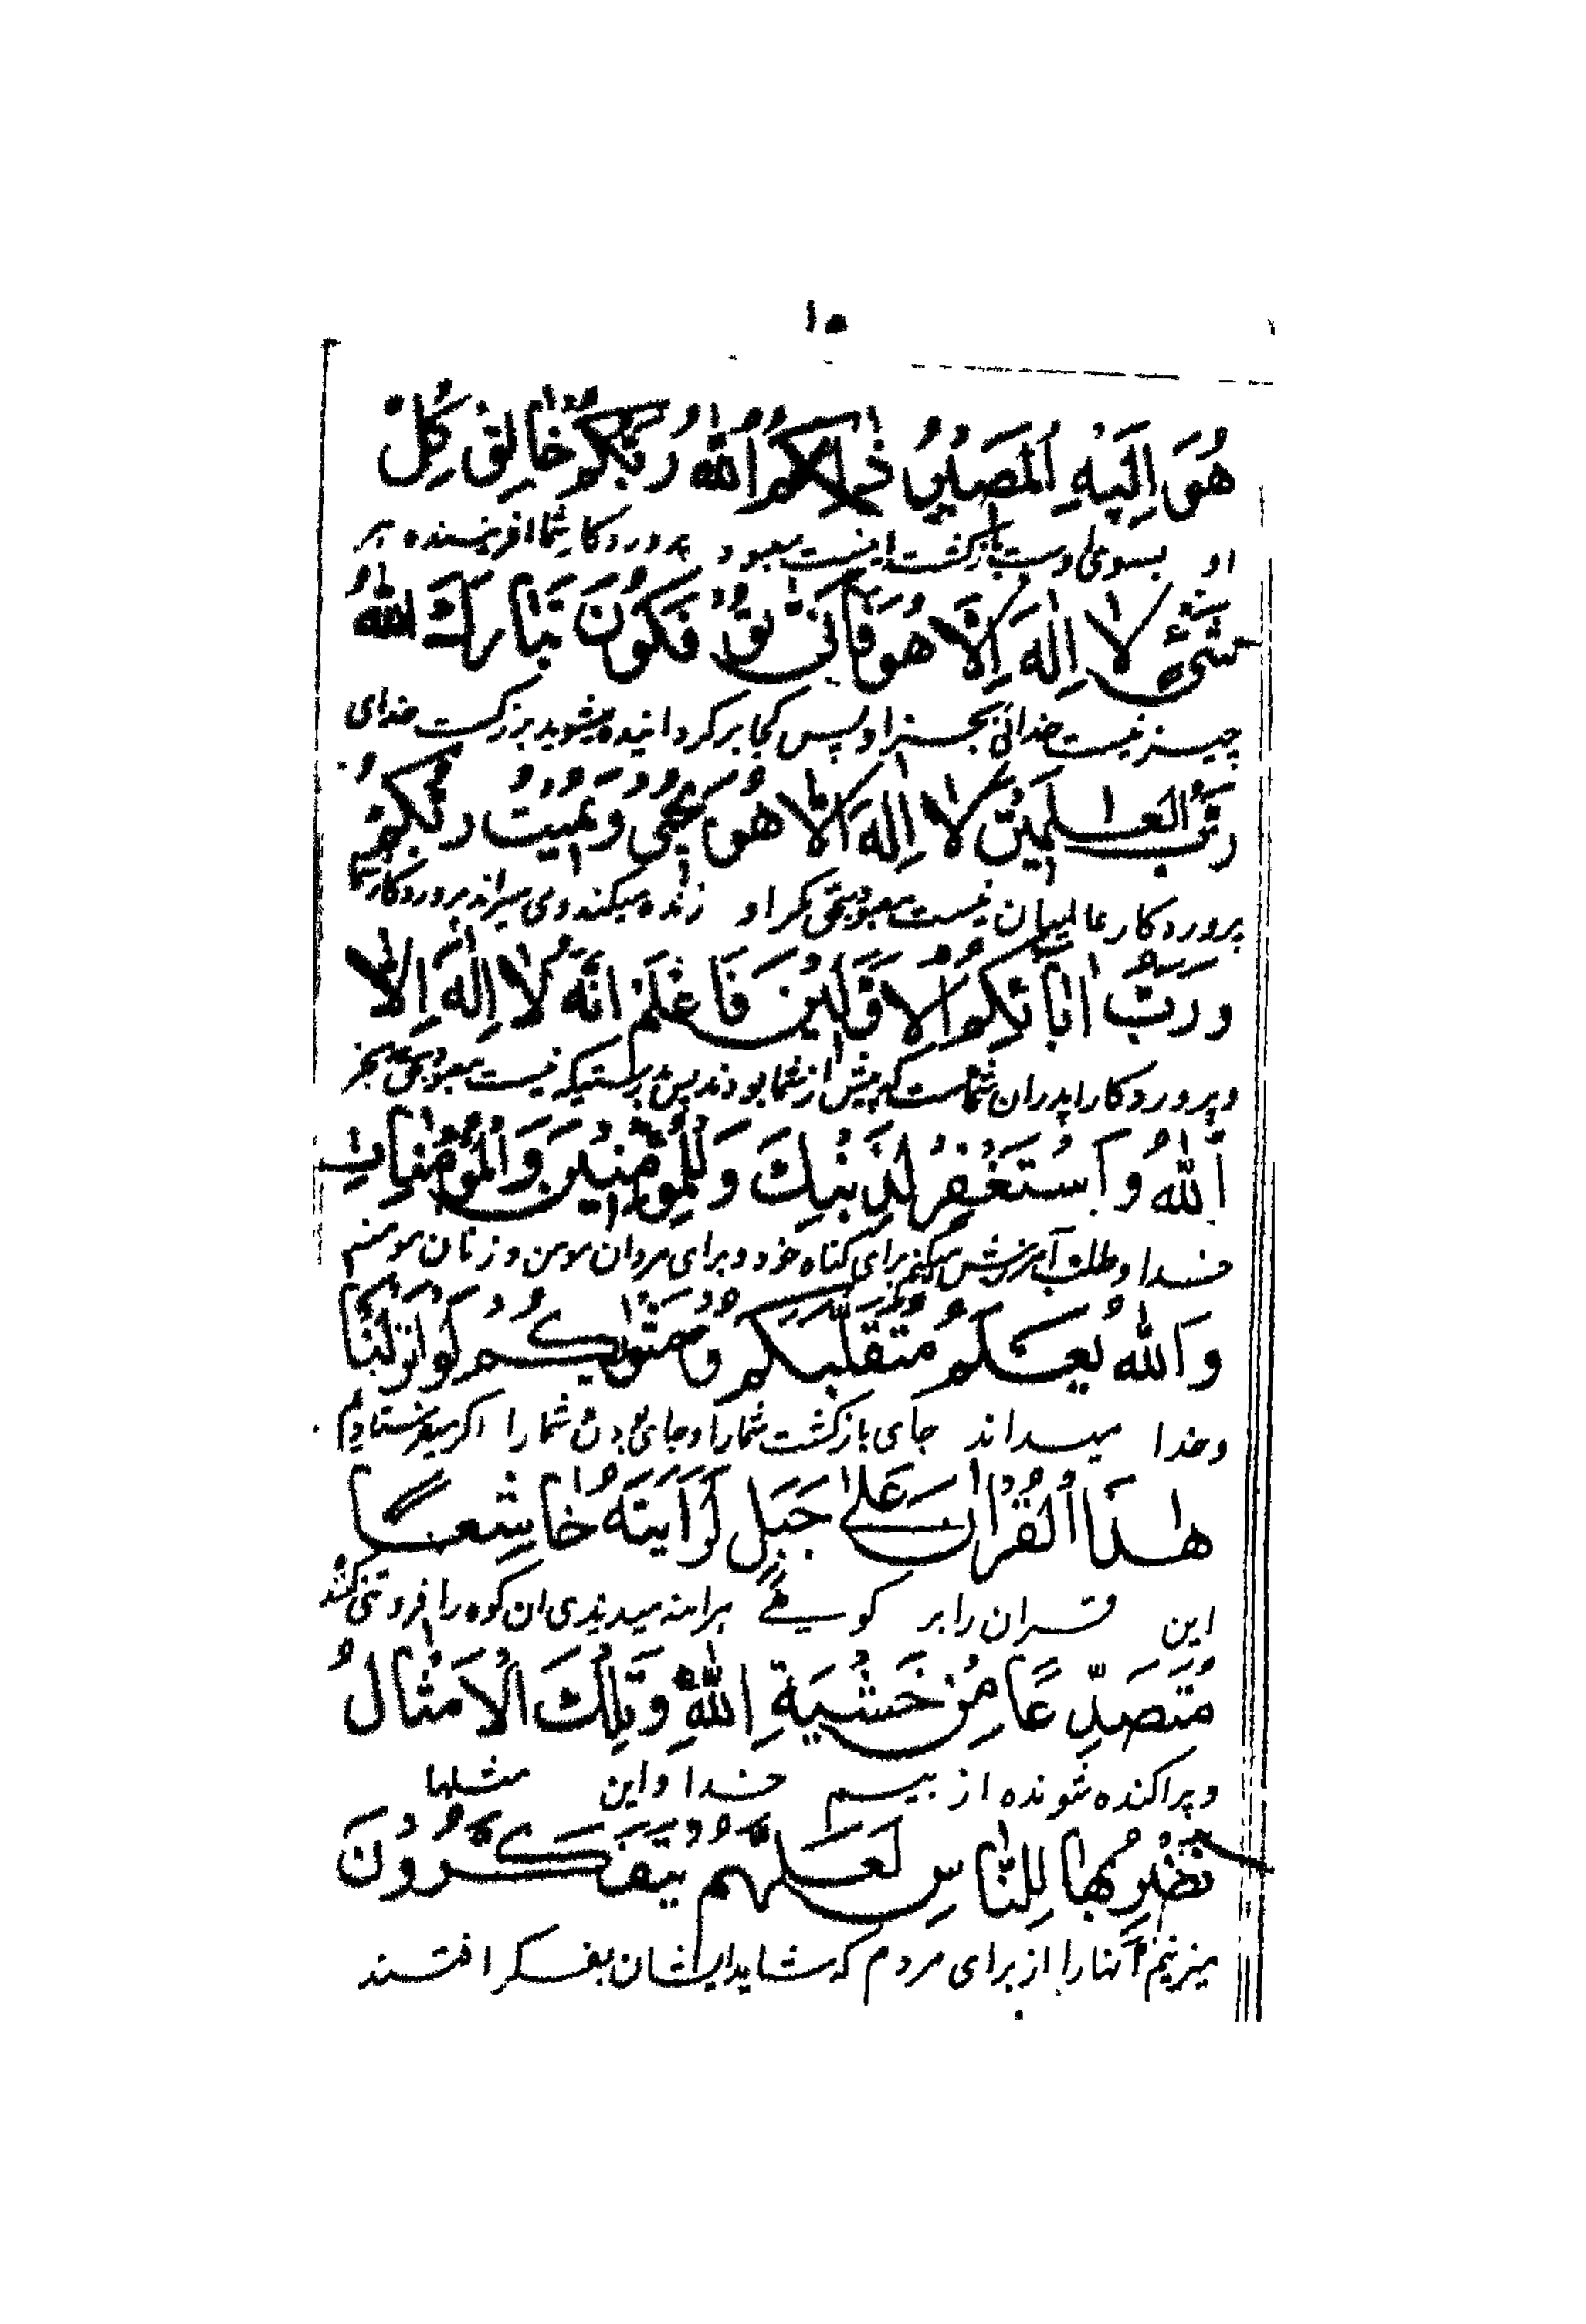 ۱۵
هُوَ اِلَيْهِ الْمَصِيْرُ ذٰلِكُمُ اللّٰهُ رَبُّكُمْ خَالِقُ كُلِّ
او بسوی اوست بازگشت اینست معبود پروردگار شما افریننده هر
شَیْءٍ لَا اِلٰهَ اِلَّا هُوَ فَاَنّٰى تُؤْفَكُوْنَ تَبَارَكَ اللّٰهُ
چیز نیست خدائی بجز او پس کجا برگردانیده میشوید بزرگست خدای
رَبُّ الْعٰلَمِيْنَ لَا اِلٰهَ اِلَّا هُوَ يُحْيٖ وَيُمِيْتُ رَبُّكُمْ
پروردگار عالمیان نیست معبود بحق مگر او زنده میکند و می میراند پروردگار شما
وَرَبُّ اٰبَائِكُمُ الْاَوَّلِيْنَ فَاعْلَمْ اَنَّهٗ لَا اِلٰهَ اِلَّا
و پروردگار پدران شماست که پیش از شما بودند پس براستیکه نیست معبود بحق بجز
اَللّٰهُ وَاسْتَغْفِرْ لِذَنْبِكَ وَلِلْمُؤْمِنِيْنَ وَالْمُؤْمِنَاتِ
خدا و طلب آمرزش میکنم برای گناه خود و برای مردان مومن و زنان مومنه
وَاللّٰهُ يَعْلَمُ مُتَقَلَّبَكُمْ وَمَثْوٰيكُمْ لَوْ اَنْزَلْنَا
و خدا میداند جای بازگشت شما را و جای بودن شما را اگر میفرستادیم
هٰذَا الْقُرْاٰنَ عَلٰى جَبَلٍ لَرَاَيْتَهٗ خَاشِعًا
این قران را بر کوهی هراینه میدیدی ان کوه را فروتنی کننده
مُتَصَدِّعًا مِنْ خَشْيَةِ اللّٰهِ وَتِلْكَ الْاَمْثَالُ
و پراکنده شونده از بیم خدا و این مثلها
نَضْرِبُهَا لِلنَّاسِ لَعَلَّهُمْ يَتَفَكَّرُوْنَ
میزنیم آنها را از برای مردم که شاید ایشان بفکر افتند